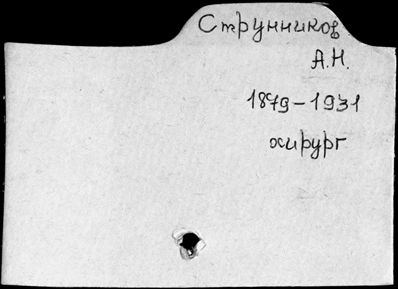 Струнников
А.Н.
1879-1931
хирург